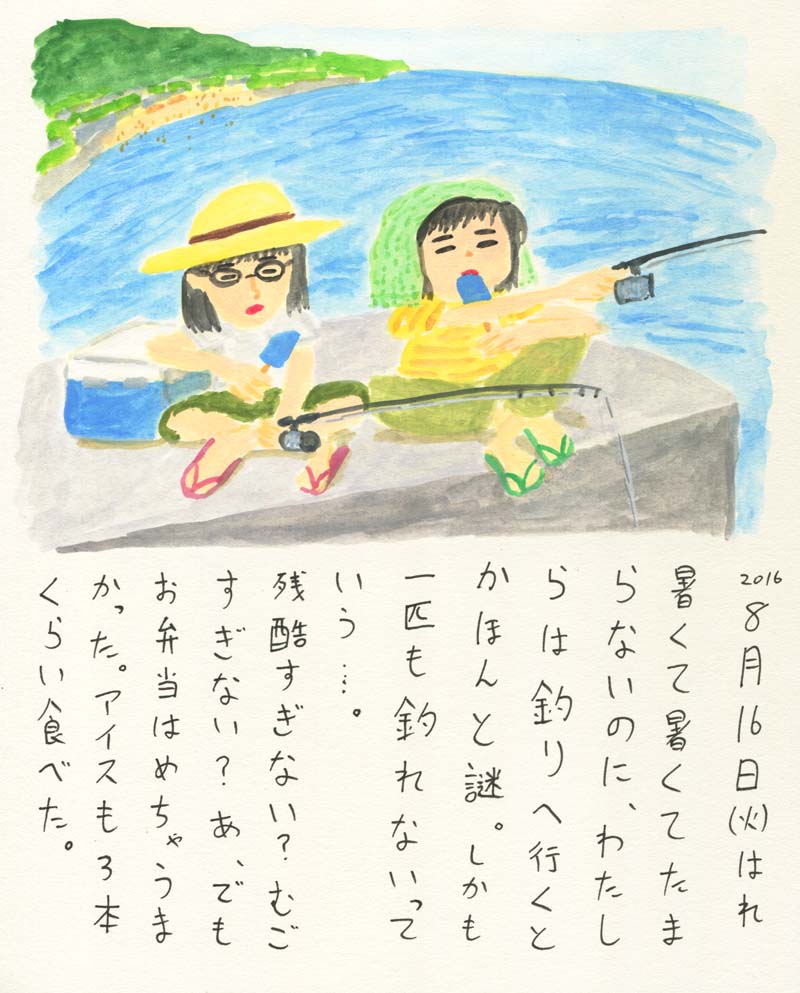 2016 8月16日(火)はれ
暑くて暑くてたま
らないのに、わたし
らは釣りへ行くと
かほんと謎。しかも
一匹も釣れないって
いう…。
残酷すぎない？むご
すぎない？あ、でも
お弁当はめちゃうま
かった。アイスも3本
くらい食べた。